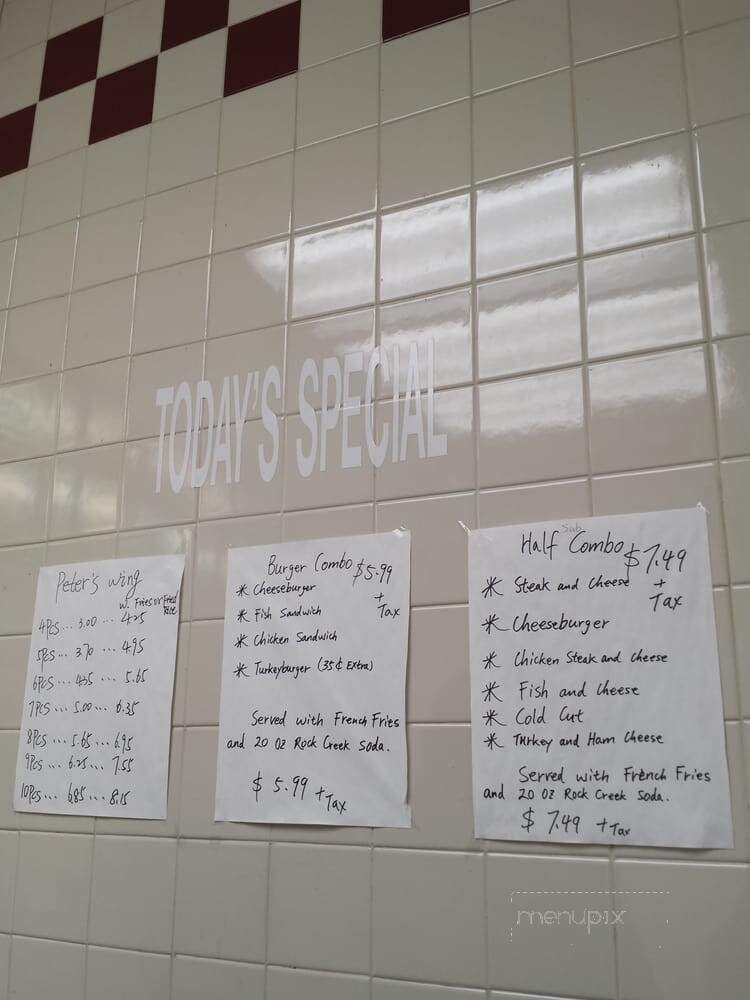 TODAY'S SPECIAL
Peter's wing
w. Fries or Fried Rice
4PCS ... 3.00 ... 4.25
5PCS ... 3.70 ... 4.95
6PCS ... 4.35 ... 5.65
7PCS ... 5.00 ... 6.35
8PCS ... 5.65 ... 6.95
9PCS ... 6.25 ... 7.55
10PCS ... 6.85 ... 8.15
Burger Combo $5.99
+ Tax
* Cheeseburger
* Fish Sandwich
* Chicken Sandwich
* Turkeyburger (35¢ Extra)
Served with French Fries
and 20 Oz Rock Creek Soda.
$ 5.99 + Tax
Sub
Half Combo $7.49
+ Tax
* Steak and Cheese
* Cheeseburger
* Chicken Steak and cheese
* Fish and Cheese
* Cold Cut
* Turkey and Ham Cheese
Served with French Fries
and 20 Oz Rock Creek Soda.
$ 7.49 + Tax
menupix